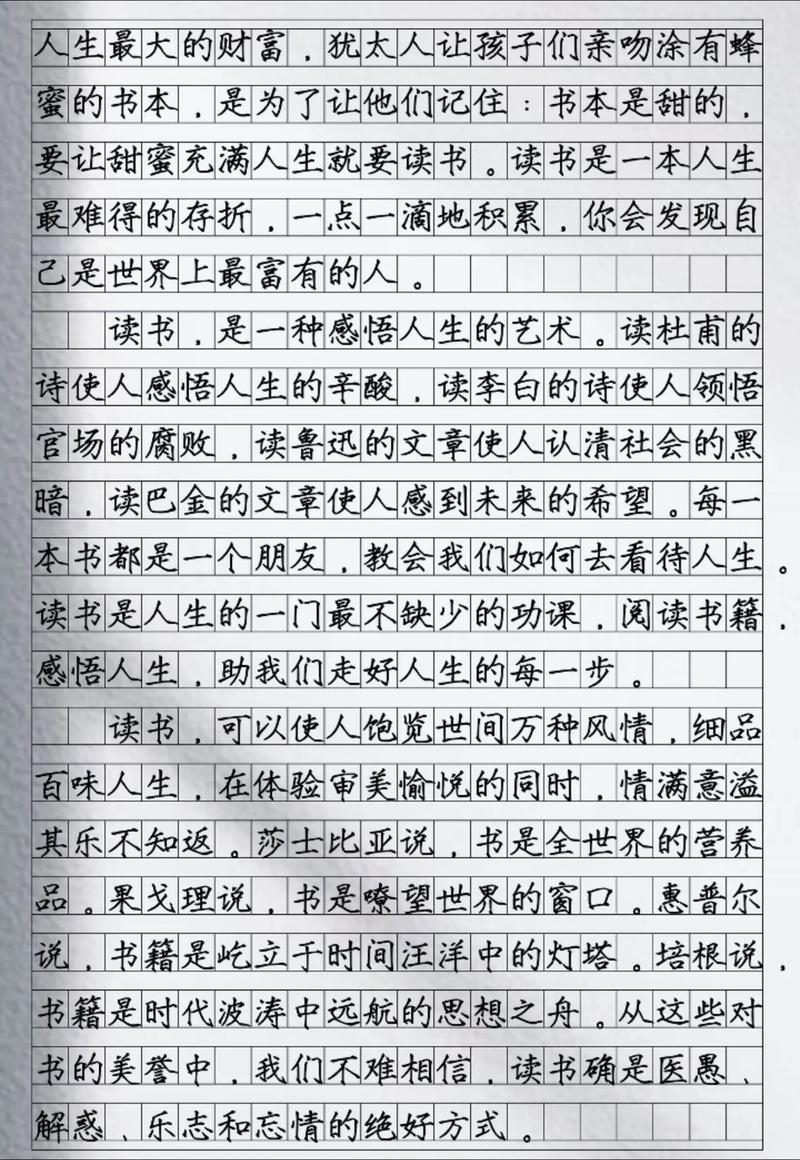 人生最大的财富，犹太人让孩子们亲吻涂有蜂
蜜的书本，是为了让他们记住：书本是甜的，
要让甜蜜充满人生就要读书。读书是一本人生
最难得的存折，一点一滴地积累，你会发现自
己是世界上最富有的人。
读书，是一种感悟人生的艺术。读杜甫的
诗使人感悟人生的辛酸，读李白的诗使人领悟
官场的腐败，读鲁迅的文章使人认清社会的黑
暗，读巴金的文章使人感到未来的希望。每一
本书都是一个朋友，教会我们如何去看待人生。
读书是人生的一门最不缺少的功课，阅读书籍，
感悟人生，助我们走好人生的每一步。
读书，可以使人饱览世间万种风情，细品
百味人生，在体验审美愉悦的同时，情满意溢
其乐不知返。莎士比亚说，书是全世界的营养
品。果戈理说，书是嘹望世界的窗口。惠普尔
说，书籍是屹立于时间汪洋中的灯塔。培根说，
书籍是时代波涛中远航的思想之舟。从这些对
书的美誉中，我们不难相信，读书确是医愚、
解惑、乐志和忘情的绝好方式。